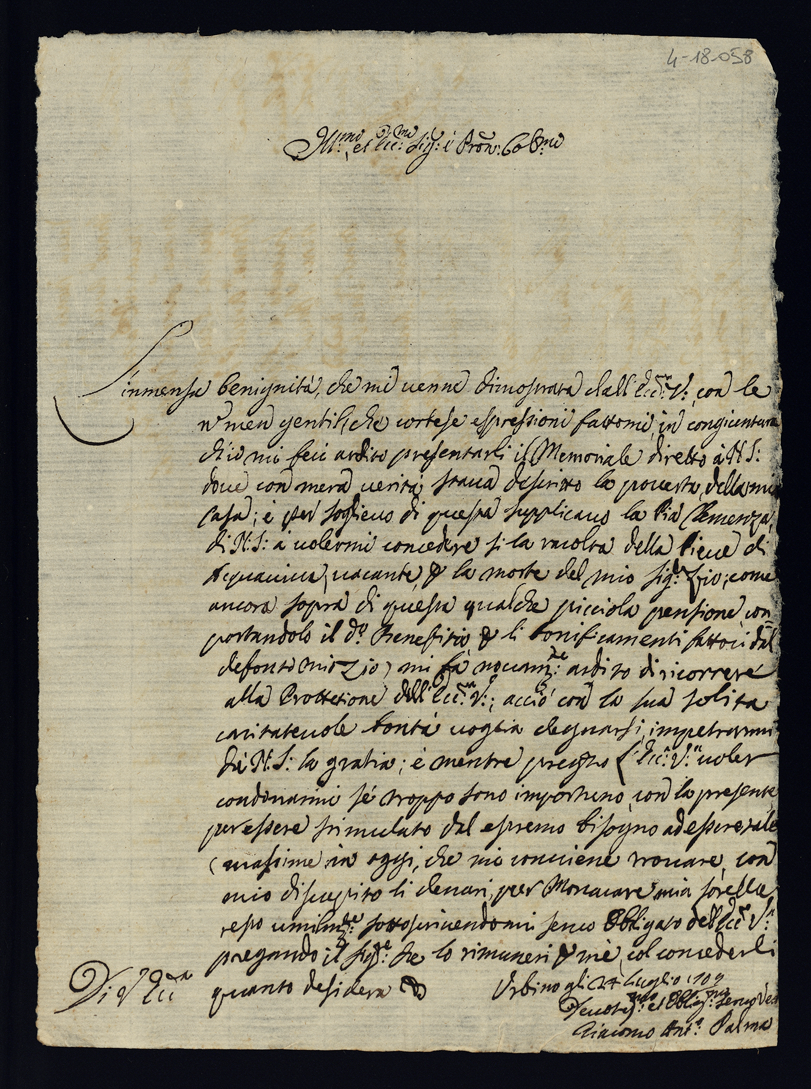 4-18-058
Ill:mo et Ecc:mo Sig:r é Pron: Col:mo
L'inmensa benignità, che mi venne dimostrata dall'Ecc:a V:, con le
n̄ men gentili, che cortese espressioni fattomi, in congientura
ch'io mi feci ardito presentarli il Memoriale diretto à N.S:
dove con mera verità stava descritto la povertà della mia
Casa; é per soglievo di questa supplicavo la Pia Clemenza
di N.S: à volermi concedere si la raccolta della Pieve di
Acquaviva, vacante, p la morte del mio Sig:r Zio; come
ancora sopra di questa qualche picciola pensione, com
portandolo il d:o Benefitio p li bonificamenti fattoci dal
defonto mio Zio, mi fà novam:te ardito di ricorrere
alla Prottetione dell'Ecc:a V:, acciò con la sua solita
caritatevole bontà voglia degnarsi, impetrarmi
da N.S: la gratia; é mentre prego l'Ecc:a V:a voler
condonarmi sé troppo sono importuno, con la presente
per essere stimulato dal estremo bisogno ad essere tale
(massime in oggi, che mi conviene trovare, con
mio discapito li denari, per Monacare mia sorella
resto umilm:te sottoscrivendomi servo Obligato dell'Ecc:a V:a
pregando il Sig:re che lo rimuneri p mé, col concederli
quanto desidera
Di V: Ecc:a
Urbino gli 27 Luglio 1709
Devotis:mo et Oblig:mo Servo Ver
Giacomo Ant:o Palma